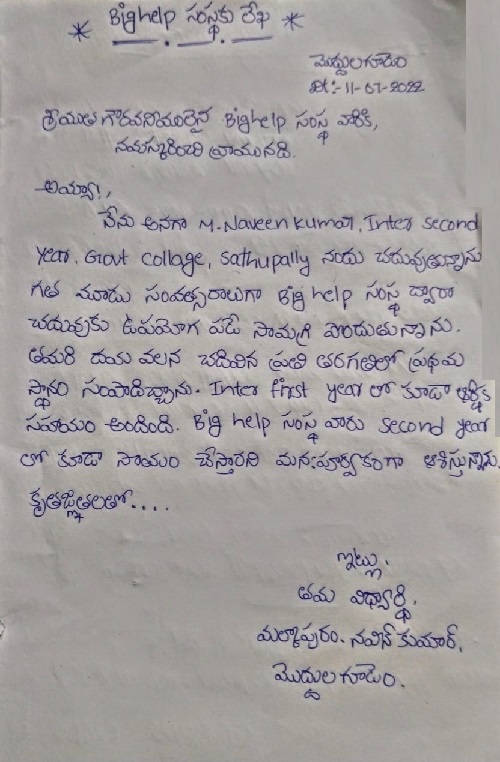 * Bighelp సంస్థకు లేఖ *
మొద్దులగూడెం
Dt:- 11-07-2022
శ్రీయుత గౌరవనీయులైన Bighelp సంస్థ వారికి,
నమస్కరించి వ్రాయునది.
అయ్యా!,
నేను అనగా M. Naveen kumar, Inter second
year, Govt collage, sathupally నందు చదువుతున్నాను
గత మూడు సంవత్సరాలుగా Big help సంస్థ ద్వారా
చదువుకు ఉపయోగ పడే సామగ్రి పొందుతున్నాను.
తమరి దయ వలన చదివిన ప్రతి తరగతిలో ప్రథమ
స్థానం సంపాదిచ్చాను. Inter first year లో కూడా ఆర్థిక
సహాయం అందింది. Big help సంస్థ వారు second year
లో కూడా సాయం చేస్తారని మనఃపూర్వకంగా ఆశిస్తున్నాను.
కృతజ్ఞతలతో....
ఇట్లు,
తమ విధ్యార్థి,
మల్కాపురం. నవీన్ కుమార్,
మొద్దుల గూడెం.